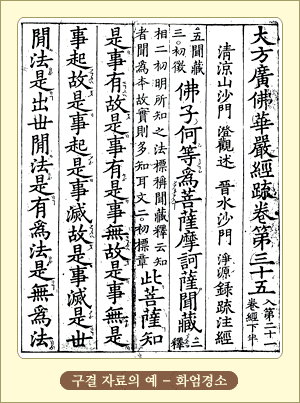 大方廣佛華嚴經疏卷第三十五
入第二十一
卷經下半
清涼山沙門 澄觀述 晋水沙門 淨源錄疏注經
五聞藏
三○初徵
佛子何等爲菩薩摩訶薩聞藏
二
釋
相二初明所知之法標稱聞藏釋云知
者聞爲本故實則多知耳文二○初標章
此菩薩知
是事有故是事有是事無故是事無是
事起故是事起是事滅故是事滅是世
閒法是出世閒法是有爲法是無爲法
구결 자료의 예 – 화엄경소